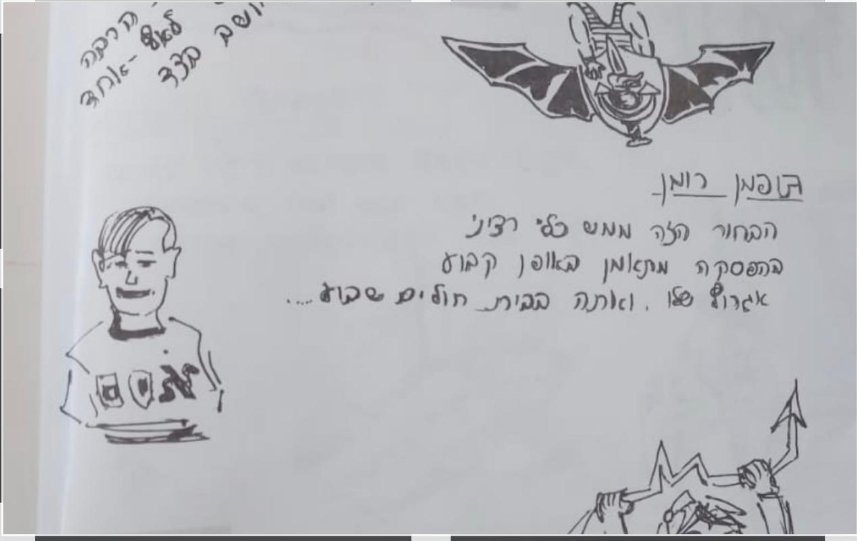 הרבה
לאף-אחד
יושב בצד
הופמן רומן
הבחור הזה ממש כלי רציני
בהפסקה מתאמן באופן קבוע
אגרוף שלו, ואתה בבית חולים שבוע....